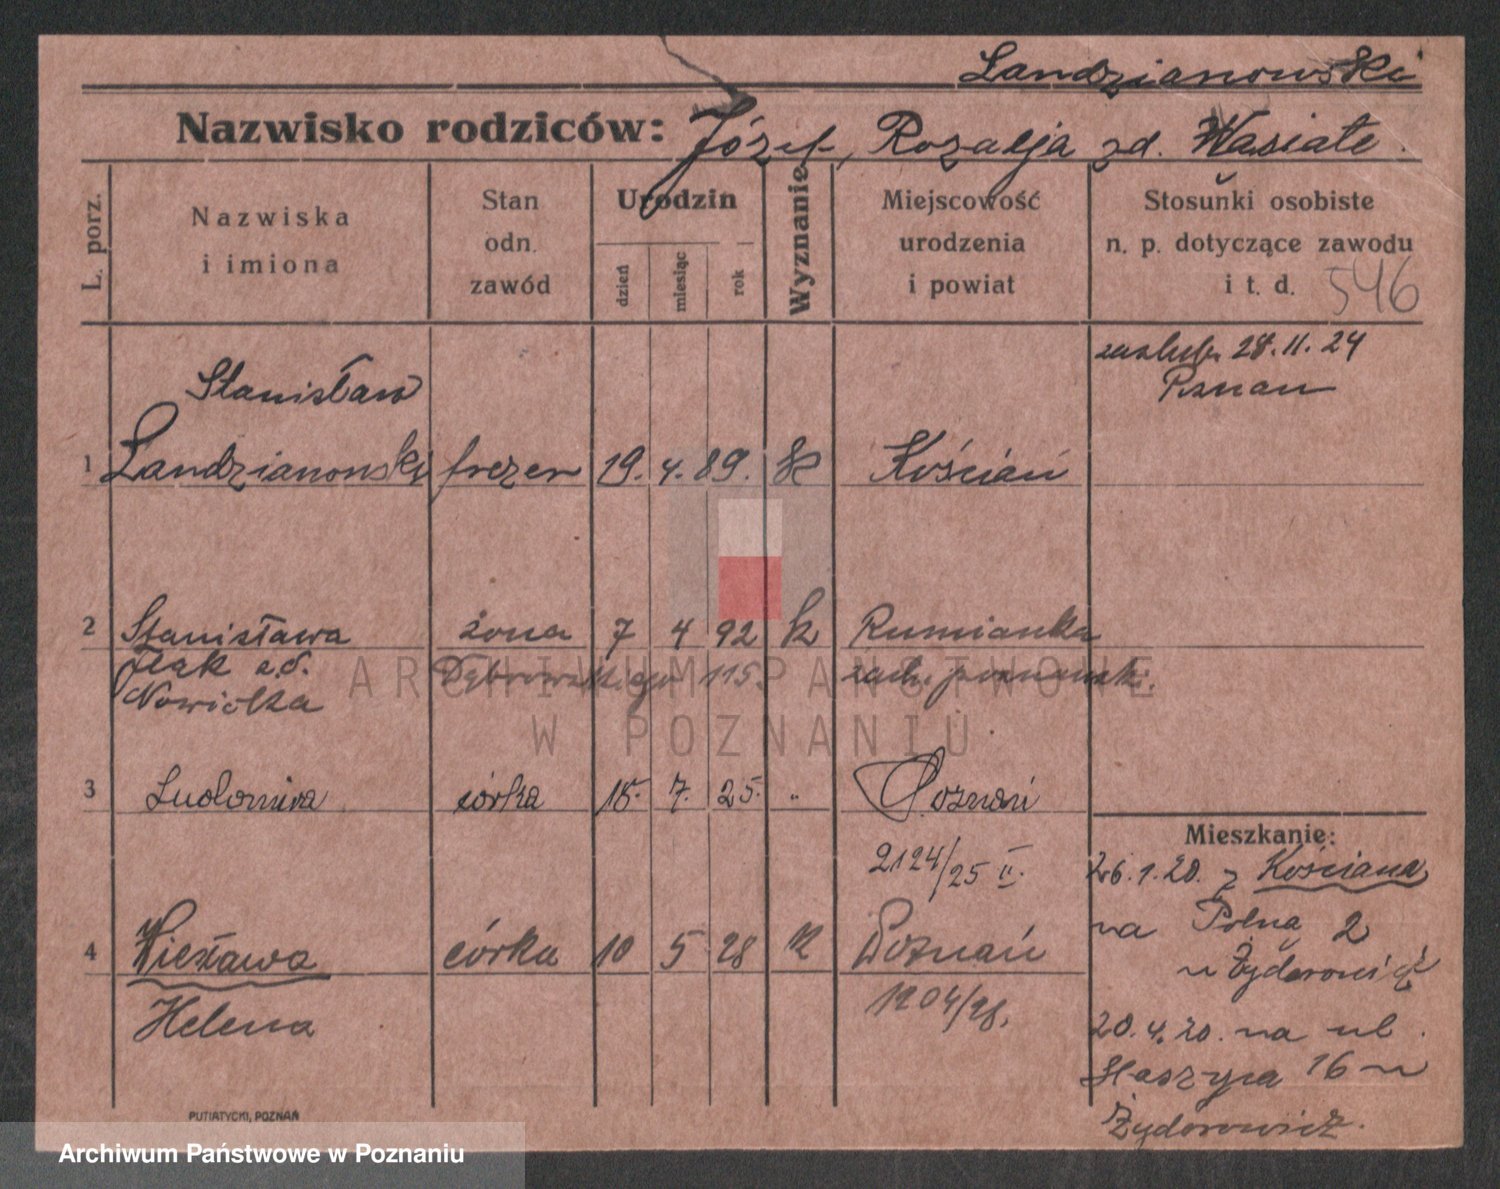 Landzianowski
Nazwisko rodziców: Józef, Rozalja zd. Wasiate.
L. porz.
Nazwiska
i imiona
Stan
odn.
zawód
Urodzin
dzień
miesiąc
rok
Wyznanie
Miejscowość
urodzenia
i powiat
Stosunki osobiste
n. p. dotyczące zawodu
i t. d. 546
28.11.24
Poznań
Stanisław
1 Landzianowsky frezer 19. 4. 89. K Kościan
2 Stanisława żona 7 4 92 k Rumianka
Flak
Nowicka
Dąbrowskiego 115.
zach. poznańsk.
3 Ludomira córka 15. 7. 25. " Poznań
2124/25 II.
Mieszkanie:
26.1.20. z Kościana
na Polną 2
u Żydorowicz
4 Wiesława córka 10 5 28 k Poznań
Helena
1204/28.
20.4.20. na ul.
16 u
Żydorowicz.
PUTIATYCKI, POZNAŃ
ARCHIWUM PAŃSTWOWE
W POZNANIU
Archiwum Państwowe w Poznaniu